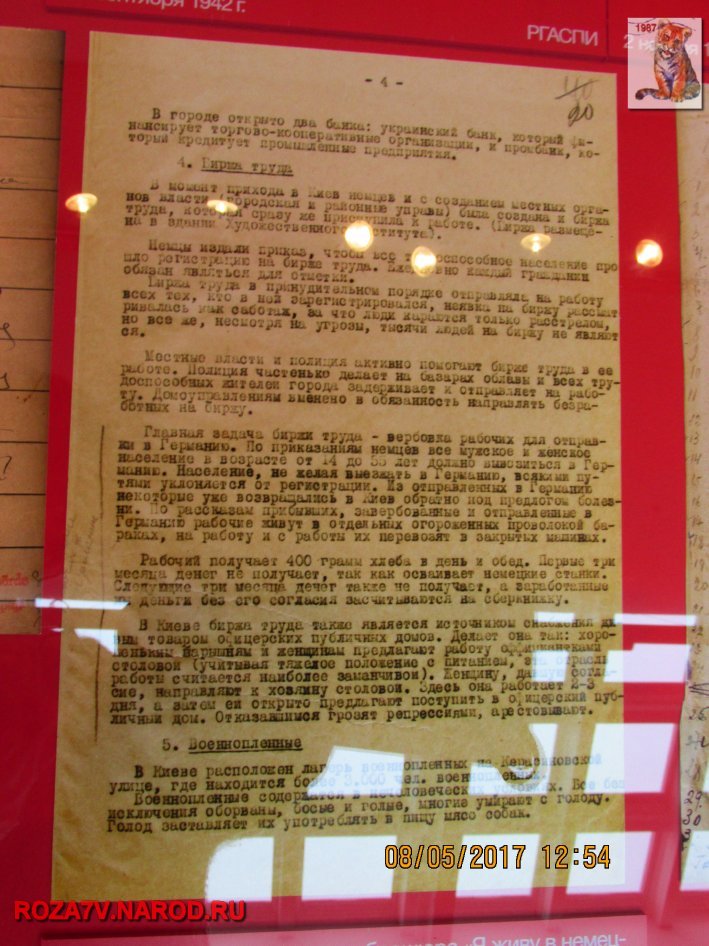 1942 г.
РГАСПИ
1987
- 4 -
20
В городе открыто два банка: украинский банк, который фи-
нансирует торгово-кооперативные организации, и промбанк, ко-
торый кредитует промышленные предприятия.
4. Биржа труда
В момент прихода в Киев немцев и с созданием местных орга-
нов власти (городская и районные управы) была создана и биржа
труда, которая сразу же приступила к работе. (Биржа размеще-
на в здании Художественного института).
Немцы издали приказ, чтобы все трудоспособное население про
шло регистрацию на бирже труда. каждый гражданин
обязан являться для отметки.
Биржа труда в принудительном порядке отправляла на работу
всех тех, кто в ней зарегистрировался, неявка на биржу рассмат
ривалась как саботаж, за что люди караются только расстрелом,
но все же, несмотря на угрозы, тысячи людей на биржу не являют
ся.
Местные власти и полиция активно помогают бирже труда в ее
работе. Полиция частенько делает на базарах облавы и всех тру-
доспособных жителей города задерживает и отправляет на рабо-
ту. Домоуправлениям вменено в обязанность направлять безра-
ботных на биржу.
Главная задача биржи труда - вербовка рабочих для отправ-
ки в Германию. По приказаниям немцев все мужское и женское
население в возрасте от 14 до 55 лет должно вывозиться в Гер-
манию. Население, не желая выезжать в Германию, всякими пу-
тями уклоняется от регистрации. Из отправленных в Германию
некоторые уже возвращались в Киев обратно под предлогом болез-
ни. По рассказам прибывших, завербованные и отправленные в
Германию рабочие живут в отдельных огороженных проволокой ба-
раках, на работу и с работы их перевозят в закрытых машинах.
Рабочий получает 400 грамм хлеба в день и обед. Первые три
месяца денег не получает, так как осваивает немецкие станки.
Следующие три месяца денег также не получает, а заработанные
деньги без его согласия засчитываются на сберкнижку.
В Киеве биржа труда также является источником снабжения жи
вым товаром офицерских публичных домов. Делает она так: хоро-
шеньким барышням и женщинам предлагают работу официантками
столовой (учитывая тяжелое положение с питанием, эта отрасль
работы считается наиболее заманчивой). Женщину, давшую согла-
сие, направляют к хозяину столовой. Здесь она работает 2-3
дня, а затем ей открыто предлагают поступить в офицерский пуб-
личный дом. Отказавшимся грозят репрессиями, арестовывают.
5. Военнопленные
В Киеве расположен лагерь военнопленных на Керасиновской
улице, где находится более 3.000 чел. военнопленных.
Военнопленные содержатся в нечеловеческих условиях. Все без
исключения оборваны, босые и голые, многие умирают с голоду.
Голод заставляет их употреблять в пищу мясо собак.
08/05/2017 12:54
ROZA7V.NAROD.RU
«Я живу в немец-